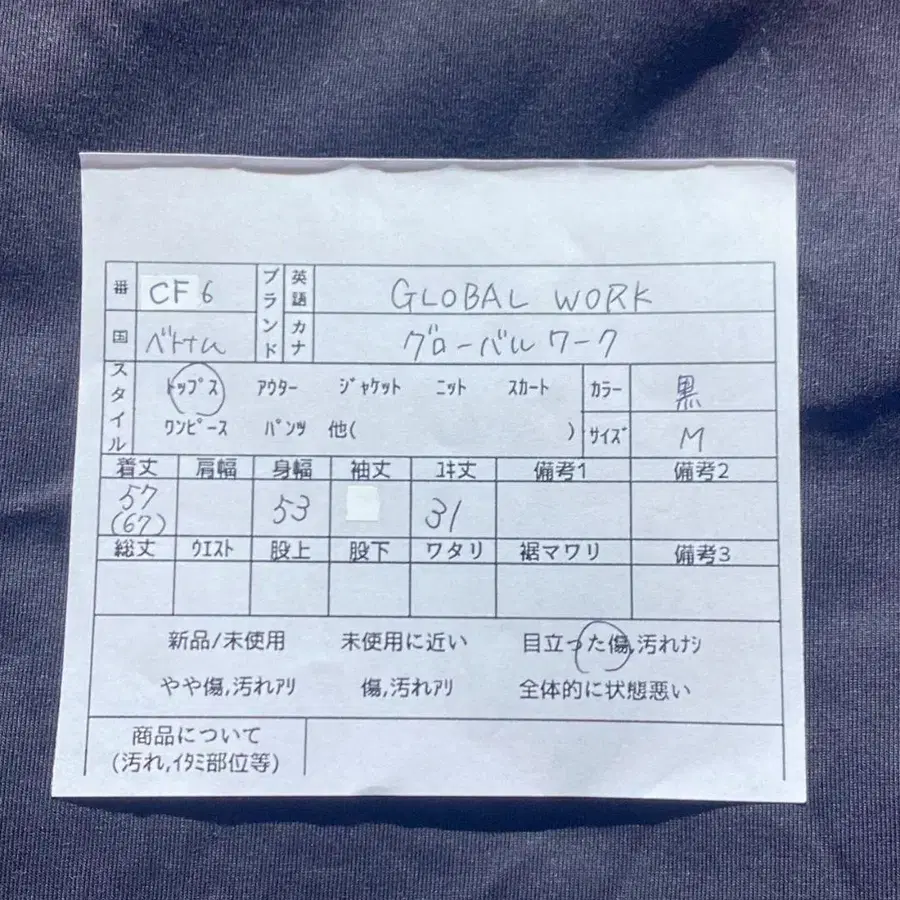 番 CF 6 ブランド 英語 GLOBAL WORK
国 ベトナム カナ グローバルワーク
スタイル トップス アウター ジャケット ニット スカート カラー 黒
ワンピース パンツ 他( ) サイズ M
着丈 肩幅 身幅 袖丈 ユキ丈 備考1 備考2
57 53 31
(67)
総丈 ウエスト 股上 股下 ワタリ 裾マワリ 備考3
新品/未使用 未使用に近い 目立った傷,汚れナシ
やや傷,汚れアリ 傷,汚れアリ 全体的に状態悪い
商品について
(汚れ,イタミ部位等)